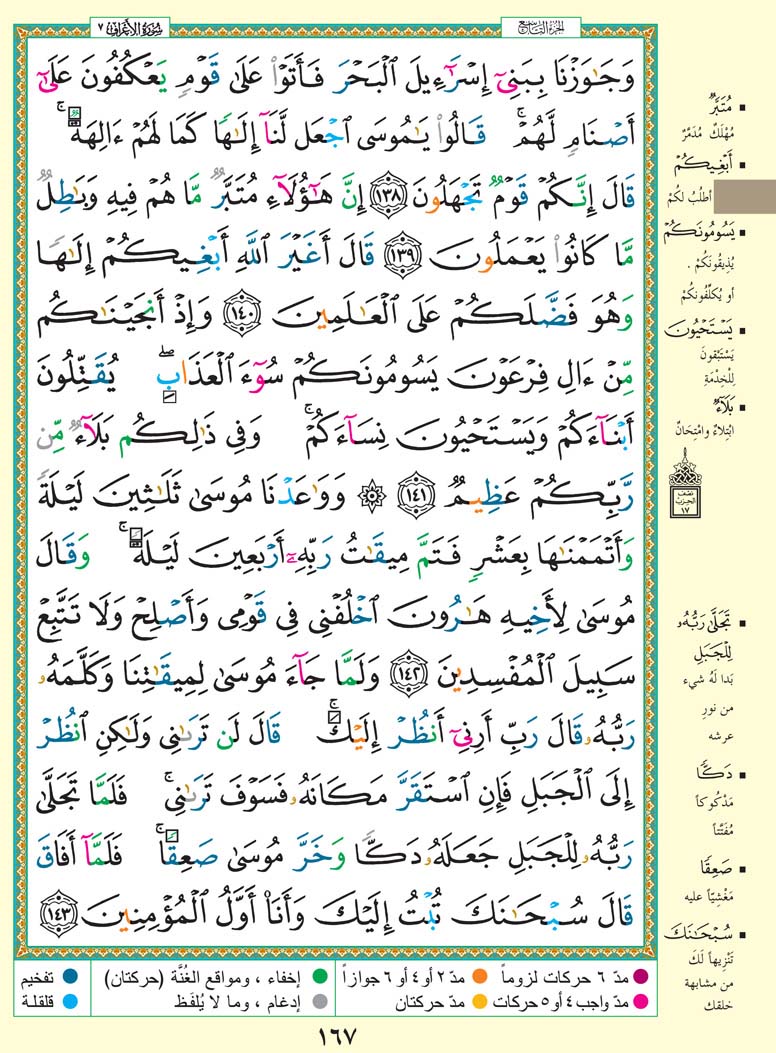 سُورَةُ الأَعْرَافِ ٧
الجُزْءُ التَّاسِعُ
وَجَٰوَزْنَا بِبَنِىٓ إِسْرَٰٓءِيلَ ٱلْبَحْرَ فَأَتَوْا۟ عَلَىٰ قَوْمٍ يَعْكُفُونَ عَلَىٰٓ
أَصْنَامٍ لَّهُمْ ۚ قَالُوا۟ يَٰمُوسَى ٱجْعَل لَّنَآ إِلَٰهًا كَمَا لَهُمْ ءَالِهَةٌ ۚ
قَالَ إِنَّكُمْ قَوْمٌ تَجْهَلُونَ ﴿١٣٨﴾ إِنَّ هَٰٓؤُلَآءِ مُتَبَّرٌ مَّا هُمْ فِيهِ وَبَٰطِلٌ
مَّا كَانُوا۟ يَعْمَلُونَ ﴿١٣٩﴾ قَالَ أَغَيْرَ ٱللَّهِ أَبْغِيكُمْ إِلَٰهًا
وَهُوَ فَضَّلَكُمْ عَلَى ٱلْعَٰلَمِينَ ﴿١٤٠﴾ وَإِذْ أَنجَيْنَٰكُم
مِّنْ ءَالِ فِرْعَوْنَ يَسُومُونَكُمْ سُوٓءَ ٱلْعَذَابِ ۖ يُقَتِّلُونَ
أَبْنَآءَكُمْ وَيَسْتَحْيُونَ نِسَآءَكُمْ ۚ وَفِى ذَٰلِكُم بَلَآءٌ مِّن
رَّبِّكُمْ عَظِيمٌ ﴿١٤١﴾ ۞ وَوَٰعَدْنَا مُوسَىٰ ثَلَٰثِينَ لَيْلَةً
وَأَتْمَمْنَٰهَا بِعَشْرٍ فَتَمَّ مِيقَٰتُ رَبِّهِۦٓ أَرْبَعِينَ لَيْلَةً ۚ وَقَالَ
مُوسَىٰ لِأَخِيهِ هَٰرُونَ ٱخْلُفْنِى فِى قَوْمِى وَأَصْلِحْ وَلَا تَتَّبِعْ
سَبِيلَ ٱلْمُفْسِدِينَ ﴿١٤٢﴾ وَلَمَّا جَآءَ مُوسَىٰ لِمِيقَٰتِنَا وَكَلَّمَهُۥ
رَبُّهُۥ قَالَ رَبِّ أَرِنِىٓ أَنظُرْ إِلَيْكَ ۚ قَالَ لَن تَرَىٰنِى وَلَٰكِنِ ٱنظُرْ
إِلَى ٱلْجَبَلِ فَإِنِ ٱسْتَقَرَّ مَكَانَهُۥ فَسَوْفَ تَرَىٰنِى ۚ فَلَمَّا تَجَلَّىٰ
رَبُّهُۥ لِلْجَبَلِ جَعَلَهُۥ دَكًّا وَخَرَّ مُوسَىٰ صَعِقًا ۚ فَلَمَّآ أَفَاقَ
قَالَ سُبْحَٰنَكَ تُبْتُ إِلَيْكَ وَأَنَا۠ أَوَّلُ ٱلْمُؤْمِنِينَ ﴿١٤٣﴾
▪ مُتَبَّرٌ
مُهْلَكٌ مُدَمَّرٌ
▪ أَبْغِيكُمْ
أطلُبُ لكُمْ
▪ يَسُومُونَكُمْ
يُذِيقُونَكُمْ .
أو يُكلِّفُونكُمْ
▪ يَسْتَحْيُونَ
يَسْتَبْقونَ
لِلْخِدْمَةِ
▪ بَلَآءٌ
ابْتِلاءٌ وامْتِحَانٌ
نصف
الحزب
١٧
▪ تَجَلَّىٰ رَبُّهُۥ
لِلْجَبَلِ
بَدا لَهُ شيء
من نورِ
عرشه
▪ دَكًّا
مَدْكُوكاً
مُفَتَّتاً
▪ صَعِقًا
مَغْشِيّاً عليه
▪ سُبْحَٰنَكَ
تَنْزِيهاً لَكَ
من مشابهة
خلقك
● مدّ ٦ حركات لزوماً ● مدّ ٢ أو ٤ أو ٦ جوازاً ● إخفاء ، ومواقع الغُنَّة (حركتان) ● تفخيم
● مدّ واجب ٤ أو ٥ حركات ● مدّ حركتان ● إدغام ، وما لا يُلفَظ ● قلقلة
١٦٧